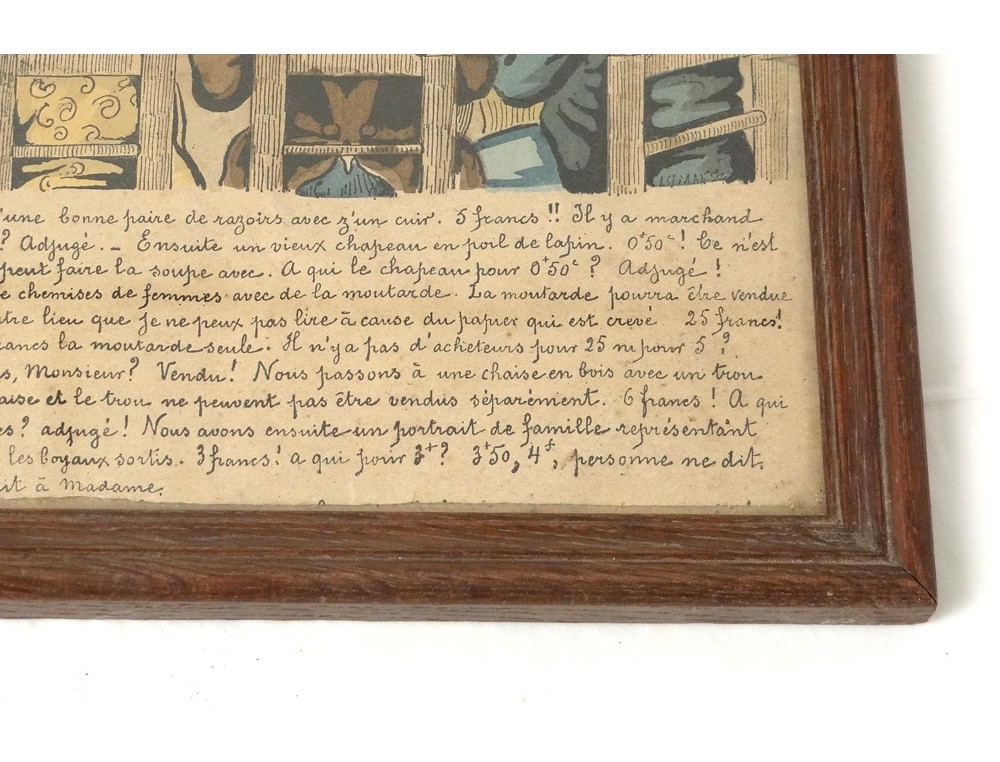 'une bonne paire de razoirs avec z'un cuir. 5 francs !! Il y a marchand
? Adjugé. – Ensuite un vieux chapeau en poil de lapin. 0f50c ! Ce n'est
peut faire la soupe avec. A qui le chapeau pour 0f50c ? Adjugé !
e chemises de femmes avec de la moutarde. La moutarde pourra être vendue
tre lieu que je ne peux pas lire à cause du papier qui est crevé 25 francs !
rancs la moutarde seule. Il n'y a pas d'acheteurs pour 25 ni pour 5 ?
s, Monsieur ? Vendu ! Nous passons à une chaise en bois avec un trou
aise et le trou ne peuvent pas être vendus séparement. 6 francs ! A qui
es ? adjugé ! Nous avons ensuite un portrait de famille représentant
les boyaux sortis. 3 francs ! a qui pour 3f ? 3f50, 4f, personne ne dit.
it à Madame.